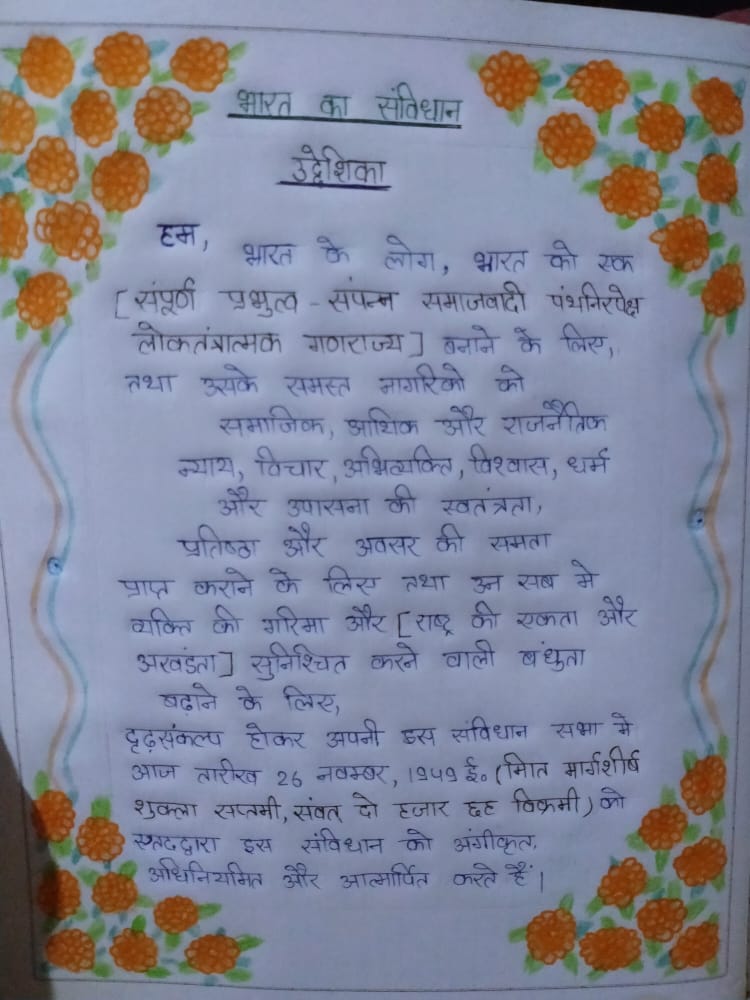 भारत का संविधान
उद्देशिका
हम, भारत के लोग, भारत को एक
[संपूर्ण प्रभुत्व - संपन्न समाजवादी पंथनिरपेक्ष
लोकतंत्रात्मक गणराज्य] बनाने के लिए,
तथा उसके समस्त नागरिको को
समाजिक, आर्थिक और राजनैतिक
न्याय, विचार, अभिव्यक्ति, विश्वास, धर्म
और उपासना की स्वतंत्रता,
प्रतिष्ठा और अवसर की समता
प्राप्त कराने के लिए तथा उन सब मे
व्यक्ति की गरिमा और [राष्ट्र की एकता और
अखंडता] सुनिश्चित करने वाली बंधुता
बढ़ाने के लिए,
दृढ़संकल्प होकर अपनी इस संविधान सभा मे
आज तारीख 26 नवम्बर, 1949 ई० (मिति मार्गशीर्ष
शुक्ला सप्तमी, संवत् दो हजार छह विक्रमी) को
एतदद्वारा इस संविधान को अंगीकृत,
अधिनियमित और आत्मार्पित करते हैं।